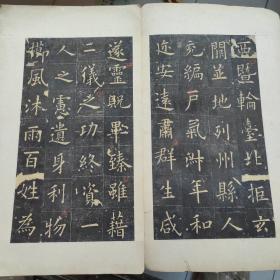 西暨輪臺北拒玄
闕並地列州縣人
充編戶氣淑年和
迩安遠肅群生咸
遂靈貺畢臻雖藉
二儀之功終資一
人之慮遺身利物
櫛風沐雨百姓為